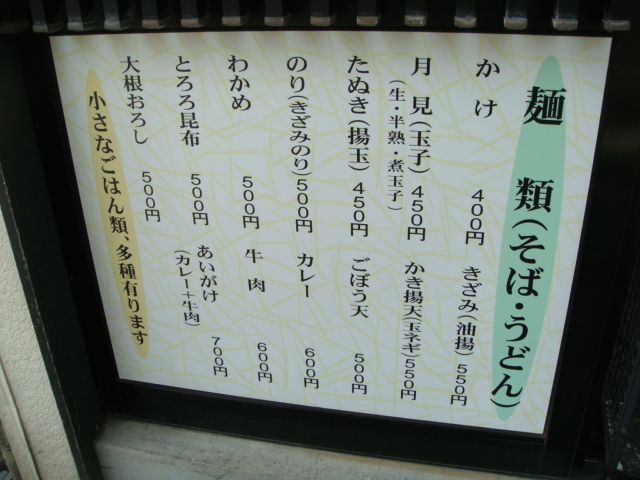 麺類(そば・うどん)
かけ 400円
きざみ(油揚) 550円
月見(玉子) 450円
(生・半熟・煮玉子)
かき揚天(玉ネギ) 550円
たぬき(揚玉) 450円
ごぼう天 500円
のり(きざみのり) 500円
カレー 600円
わかめ 500円
牛肉 600円
とろろ昆布 500円
あいがけ 700円
(カレー+牛肉)
大根おろし 500円
小さなごはん類、多種有ります